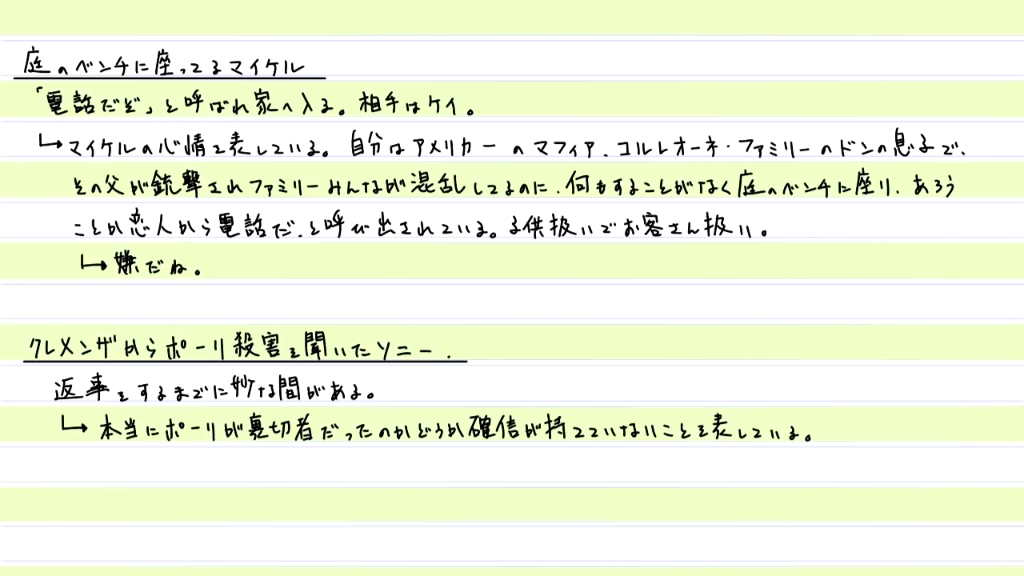 庭のベンチに座ってるマイケル
「電話だぞ」と呼ばれ家へ入る。相手はケイ。
↳マイケルの心情を表している。自分はアメリカーのマフィア、コルレオーネ・ファミリーのドンの息子で、
その父が銃撃されファミリーみんなが混乱してるのに、何もすることがなく庭のベンチに座り、あろう
ことか恋人から電話だ、と呼び出されている。子供扱いでお客さん扱い。
↳嫌だね。
クレメンザからポーリ殺害を聞いたソニー.
返事をするまでに妙な間がある。
↳本当にポーリが裏切者だったのかどうか確信が持てていないことを表している。